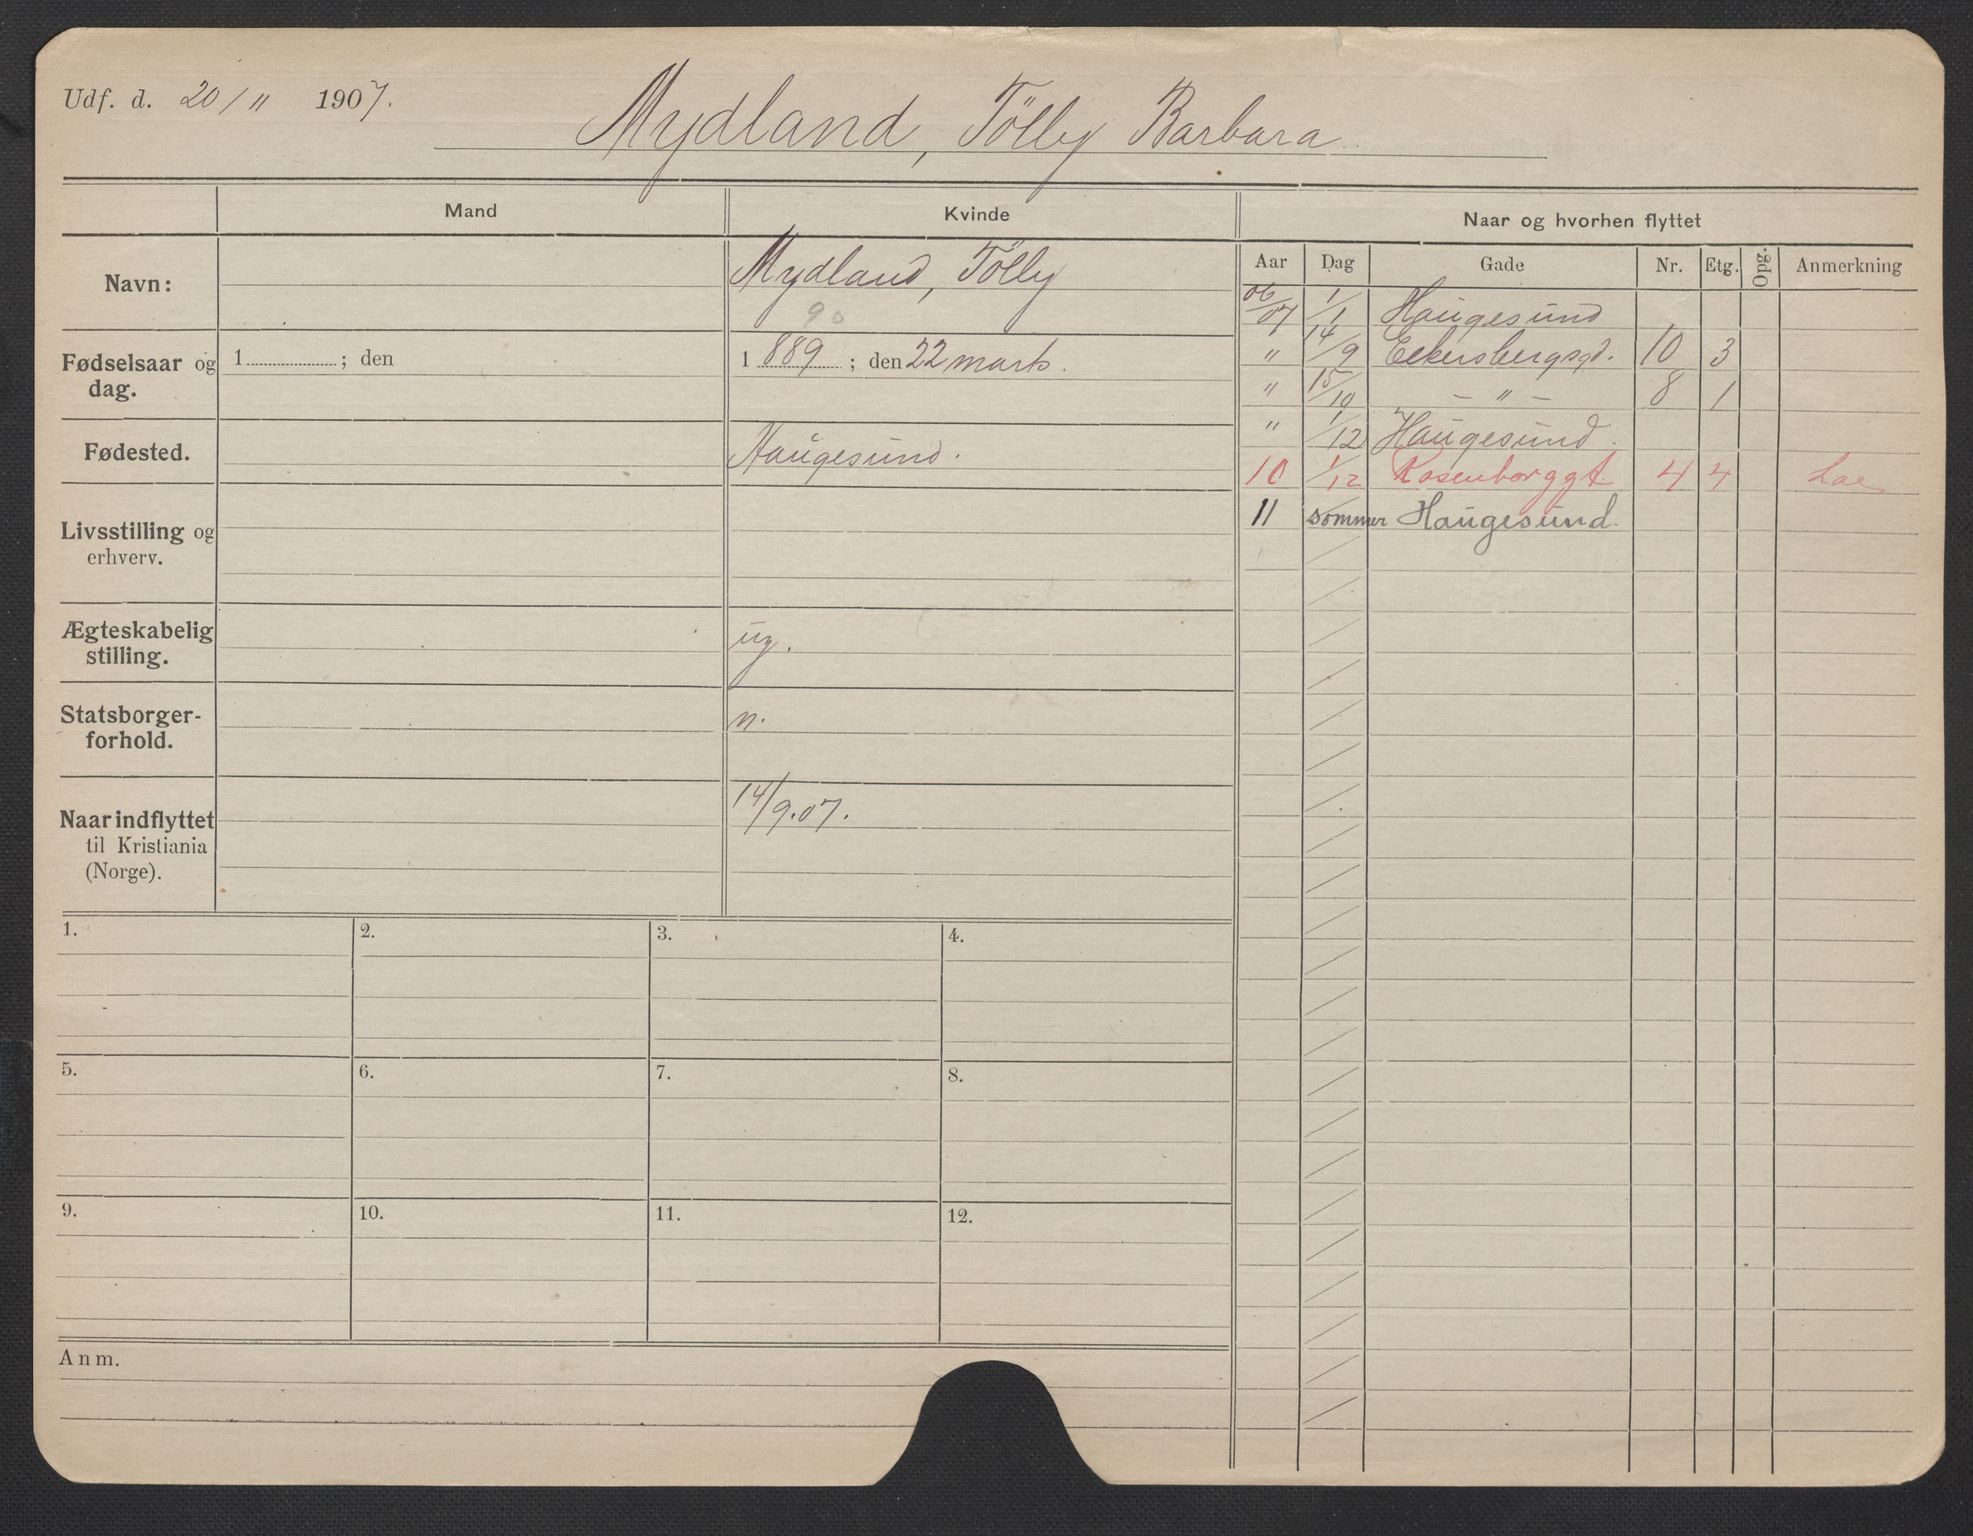 Udf. d. 20/11 1907.
Mydland, Tölly Barbara
Mand
Kvinde
Naar og hvorhen flyttet
Aar Dag Gade Nr. Etg. Opg. Anmerkning
Navn:
Mydland, Tölly
90
Fødselsaar og dag.
1 ; den
1889 ; den 22 marts.
Fødested.
Haugesund.
Livsstilling og erhverv.
Ægteskabelig stilling.
ug.
Statsborger-
forhold.
n.
Naar indflyttet
til Kristiania
(Norge).
14/9.07.
06/07 1/1 Haugesund
" 14/9 Eckersbergsgd. 10 3
" 15/10 — " — 8 1
" 1/12 Haugesund.
10 1/12 Rosenborggt. 4 4
11 sommer Haugesund.
1. 2. 3. 4.
5. 6. 7. 8.
9. 10. 11. 12.
Anm.